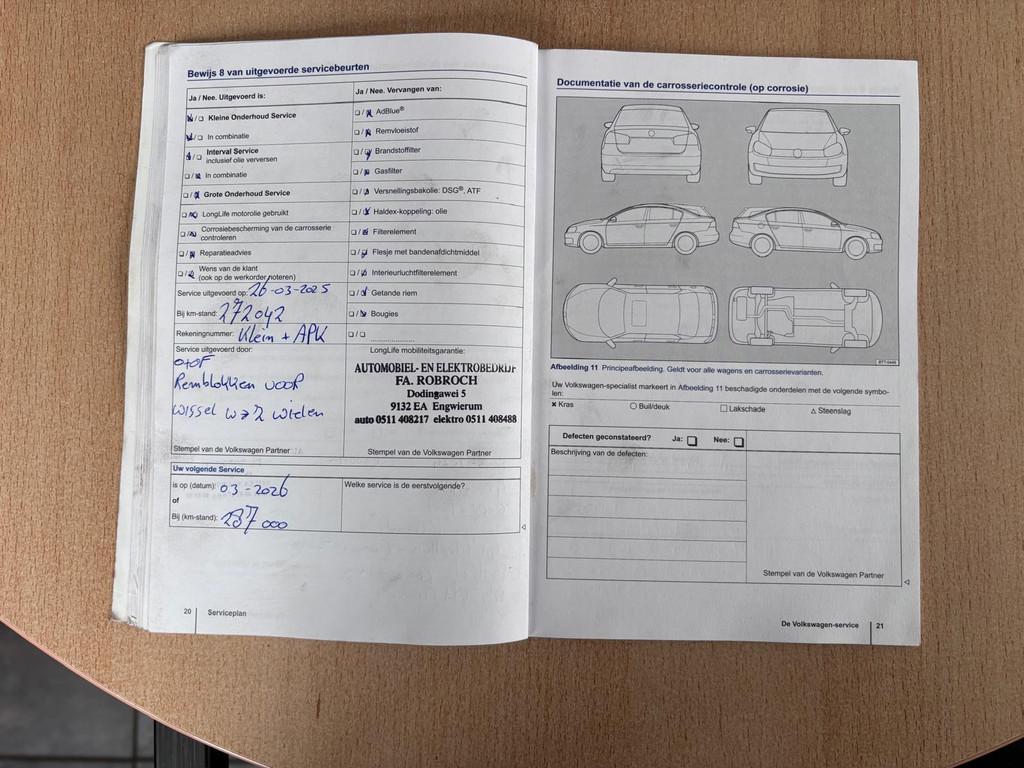 Bewijs 8 van uitgevoerde servicebeurten
Ja / Nee. Uitgevoerd is:
Kleine Onderhoud Service
In combinatie
Interval Service
inclusief olie verversen
In combinatie
Grote Onderhoud Service
LongLife motorolie gebruikt
Corrosiebescherming van de carrosserie
controleren
Reparatieadvies
Wens van de klant
(ook op de werkorder noteren)
Service uitgevoerd op: 26-03-2025
Bij km-stand: 272042
Rekeningnummer: Klein + APK
Service uitgevoerd door:
Remblokken voor
wissel w→z wielen
Stempel van de Volkswagen Partner
Ja / Nee. Vervangen van:
AdBlue®
Remvloeistof
Brandstoffilter
Gasfilter
Versnellingsbakolie: DSG®, ATF
Haldex-koppeling: olie
Filterelement
Flesje met bandenafdichtmiddel
Interieurluchtfilterelement
Getande riem
Bougies
LongLife mobiliteitsgarantie:
AUTOMOBIEL- EN ELEKTROBEDRIJF
FA. ROBROCH
Dodingawei 5
9132 EA Engwierum
auto 0511 408217 elektro 0511 408488
Stempel van de Volkswagen Partner
Uw volgende Service
is op (datum): 03-2026
of
Bij (km-stand): 287000
Welke service is de eerstvolgende?
20 Serviceplan
Documentatie van de carrosseriecontrole (op corrosie)
Afbeelding 11 Principeafbeelding. Geldt voor alle wagens en carrosserievarianten.
Uw Volkswagen-specialist markeert in Afbeelding 11 beschadigde onderdelen met de volgende symbo-
len:
× Kras
○ Buil/deuk
□ Lakschade
△ Steenslag
Defecten geconstateerd? Ja: □ Nee: □
Beschrijving van de defecten:
Stempel van de Volkswagen Partner
De Volkswagen-service 21